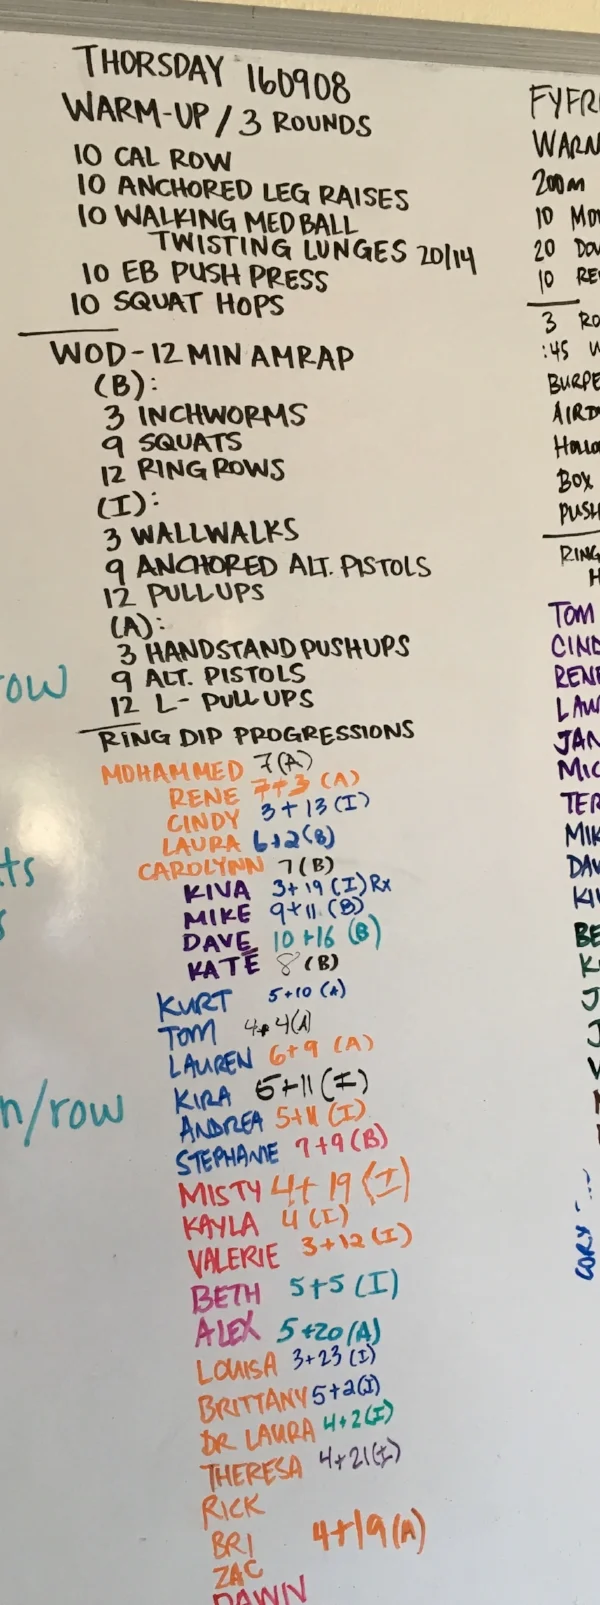 THORSDAY 160908
WARM-UP / 3 ROUNDS
10 CAL ROW
10 ANCHORED LEG RAISES
10 WALKING MEDBALL
TWISTING LUNGES 20/14
10 EB PUSH PRESS
10 SQUAT HOPS
WOD - 12 MIN AMRAP
(B):
3 INCHWORMS
9 SQUATS
12 RING ROWS
(I):
3 WALLWALKS
9 ANCHORED ALT. PISTOLS
12 PULLUPS
(A):
3 HANDSTAND PUSHUPS
9 ALT. PISTOLS
12 L- PULLUPS
RING DIP PROGRESSIONS
MOHAMMED 7 (A)
RENE 7+3 (A)
CINDY 3+13 (I)
LAURA 6+2 (B)
CAROLYNN 7 (B)
KIVA 3+19 (I) Rx
MIKE 9+11 (B)
DAVE 10+16 (B)
KATE 8 (B)
KURT 5+10 (A)
TOM 4+4 (A)
LAUREN 6+9 (A)
KIRA 5+11 (I)
ANDREA 5+11 (I)
STEPHANIE 7+9 (B)
MISTY 4+19 (I)
KAYLA 4 (I)
VALERIE 3+12 (I)
BETH 5+5 (I)
ALEX 5+20 (A)
LOUISA 3+23 (I)
BRITTANY 5+2 (I)
DR LAURA 4+2 (I)
THERESA 4+21 (I)
RICK
BRI 4+19 (A)
ZAC
DAWN
row
n/row
200m
10
20
10
3
:45
BOX
RING
TOM
CORY